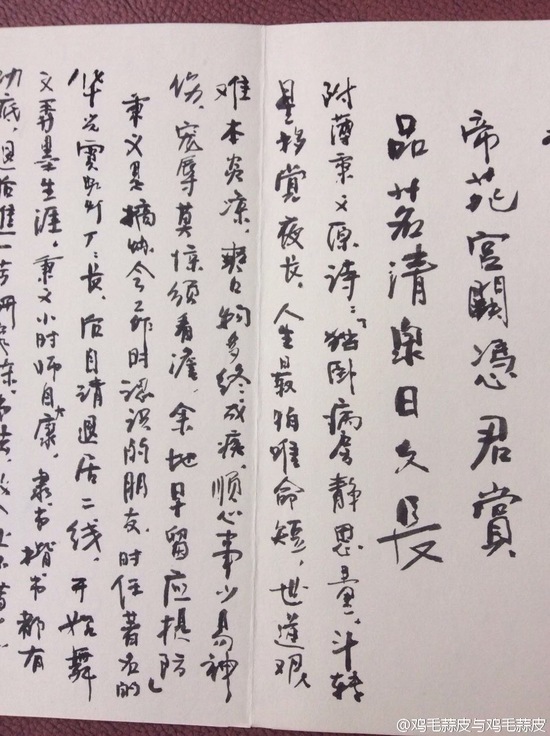 帝苑宫闕憑君賞
品茗清泉日久長
附薄秉义原诗:“独卧病房静思量,斗转
星移赏夜长。人生最怕唯命短,世道艰
难本炎凉。爽口物多终成疾,顺心事少易神
伤。宠辱莫惊须看澹,余地早留应提防”
秉义是工作时认识的朋友,时任著名的
华光霓虹灯厂厂长,后自请退居二线,开始舞
文弄墨生涯。秉义小时师自大康,隶书楷书都有
功底,退后惟一苦研
@鸡毛蒜皮与鸡毛蒜皮